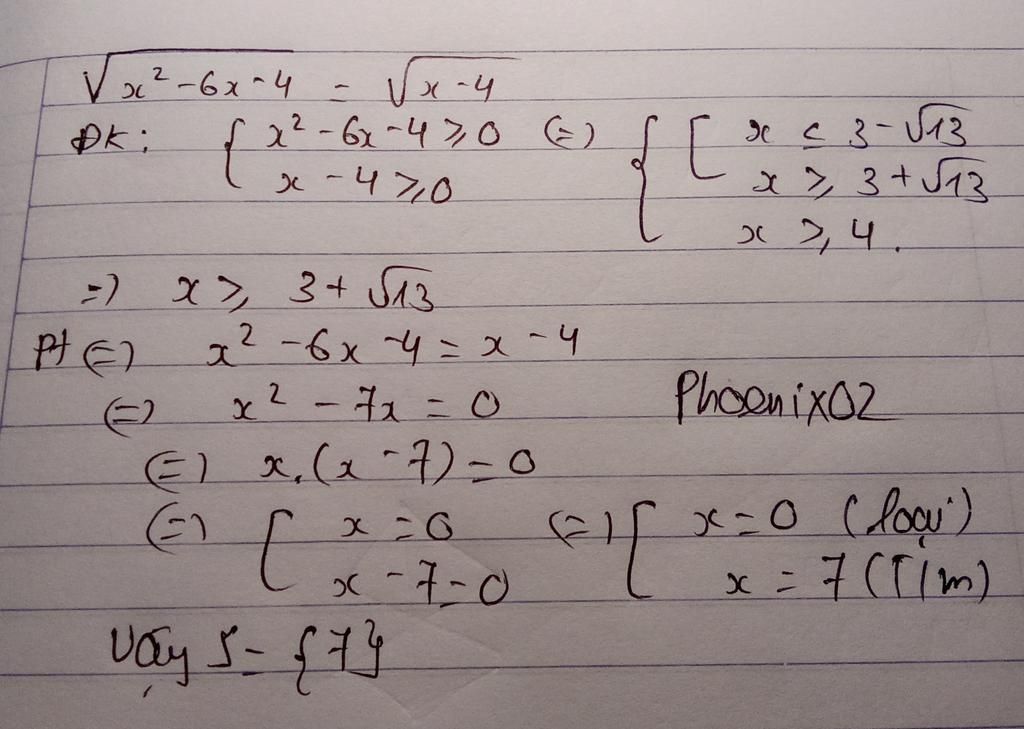 √x² - 6x - 4 = √x - 4
ĐK: { x² - 6x - 4 ⩾ 0 (=) { [ x ≤ 3 - √13
x - 4 ⩾ 0 x ⩾ 3 + √13
x ⩾ 4.
=) x ⩾ 3 + √13
Pt (=) x² - 6x - 4 = x - 4
(=) x² - 7x = 0
Phoenix02
(=) x.(x - 7) = 0
(=) [ x = 0 (=) [ x = 0 (loại)
x - 7 = 0 x = 7 (T/m)
Vậy S = {7}